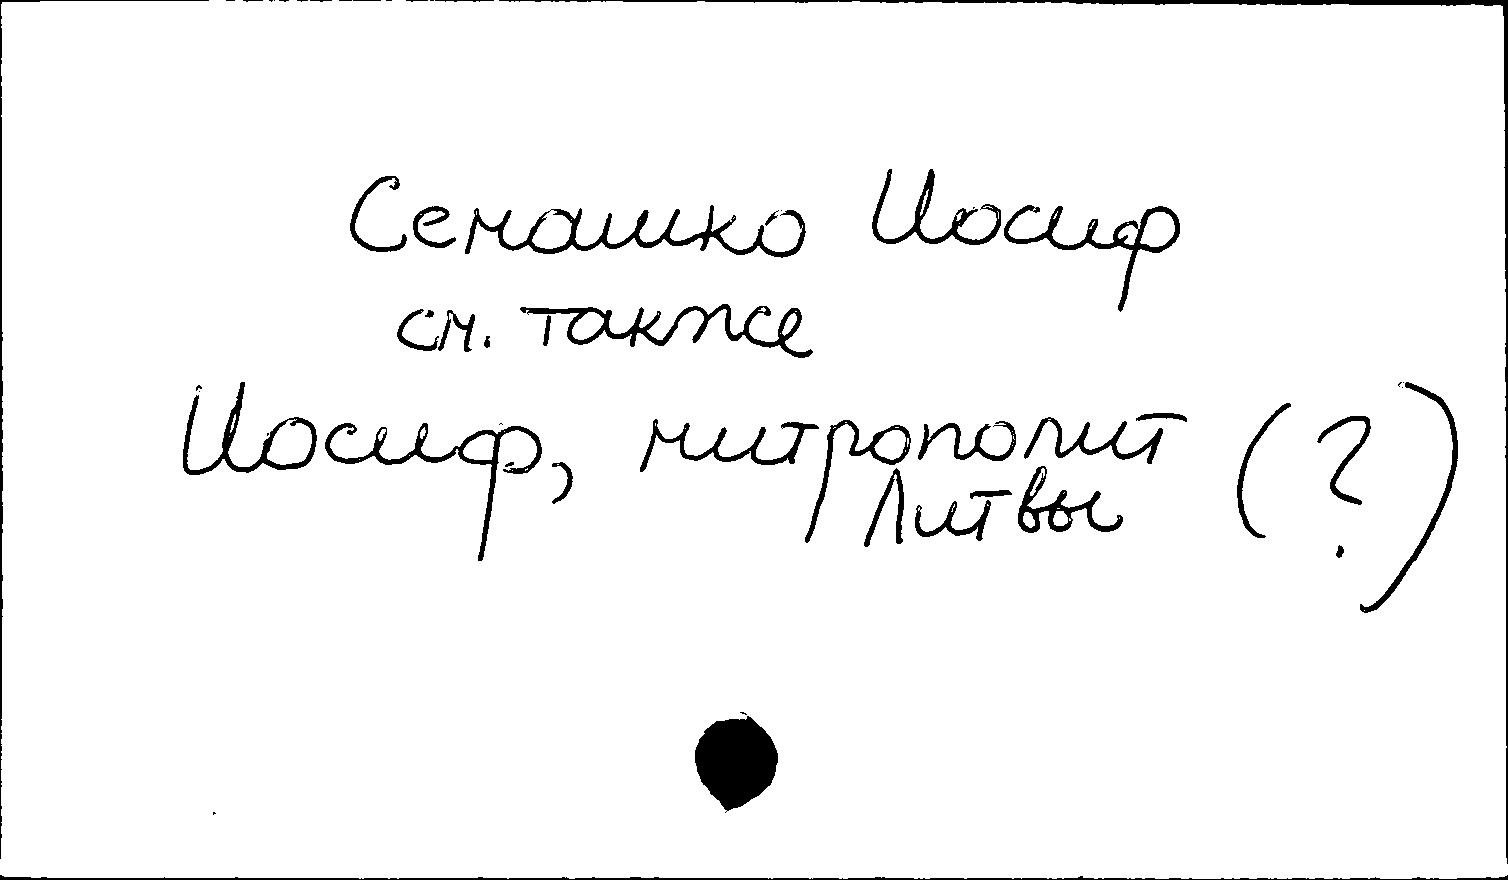 Семашко Иосиф
см. также
Иосиф, митрополит (?)
Литвы